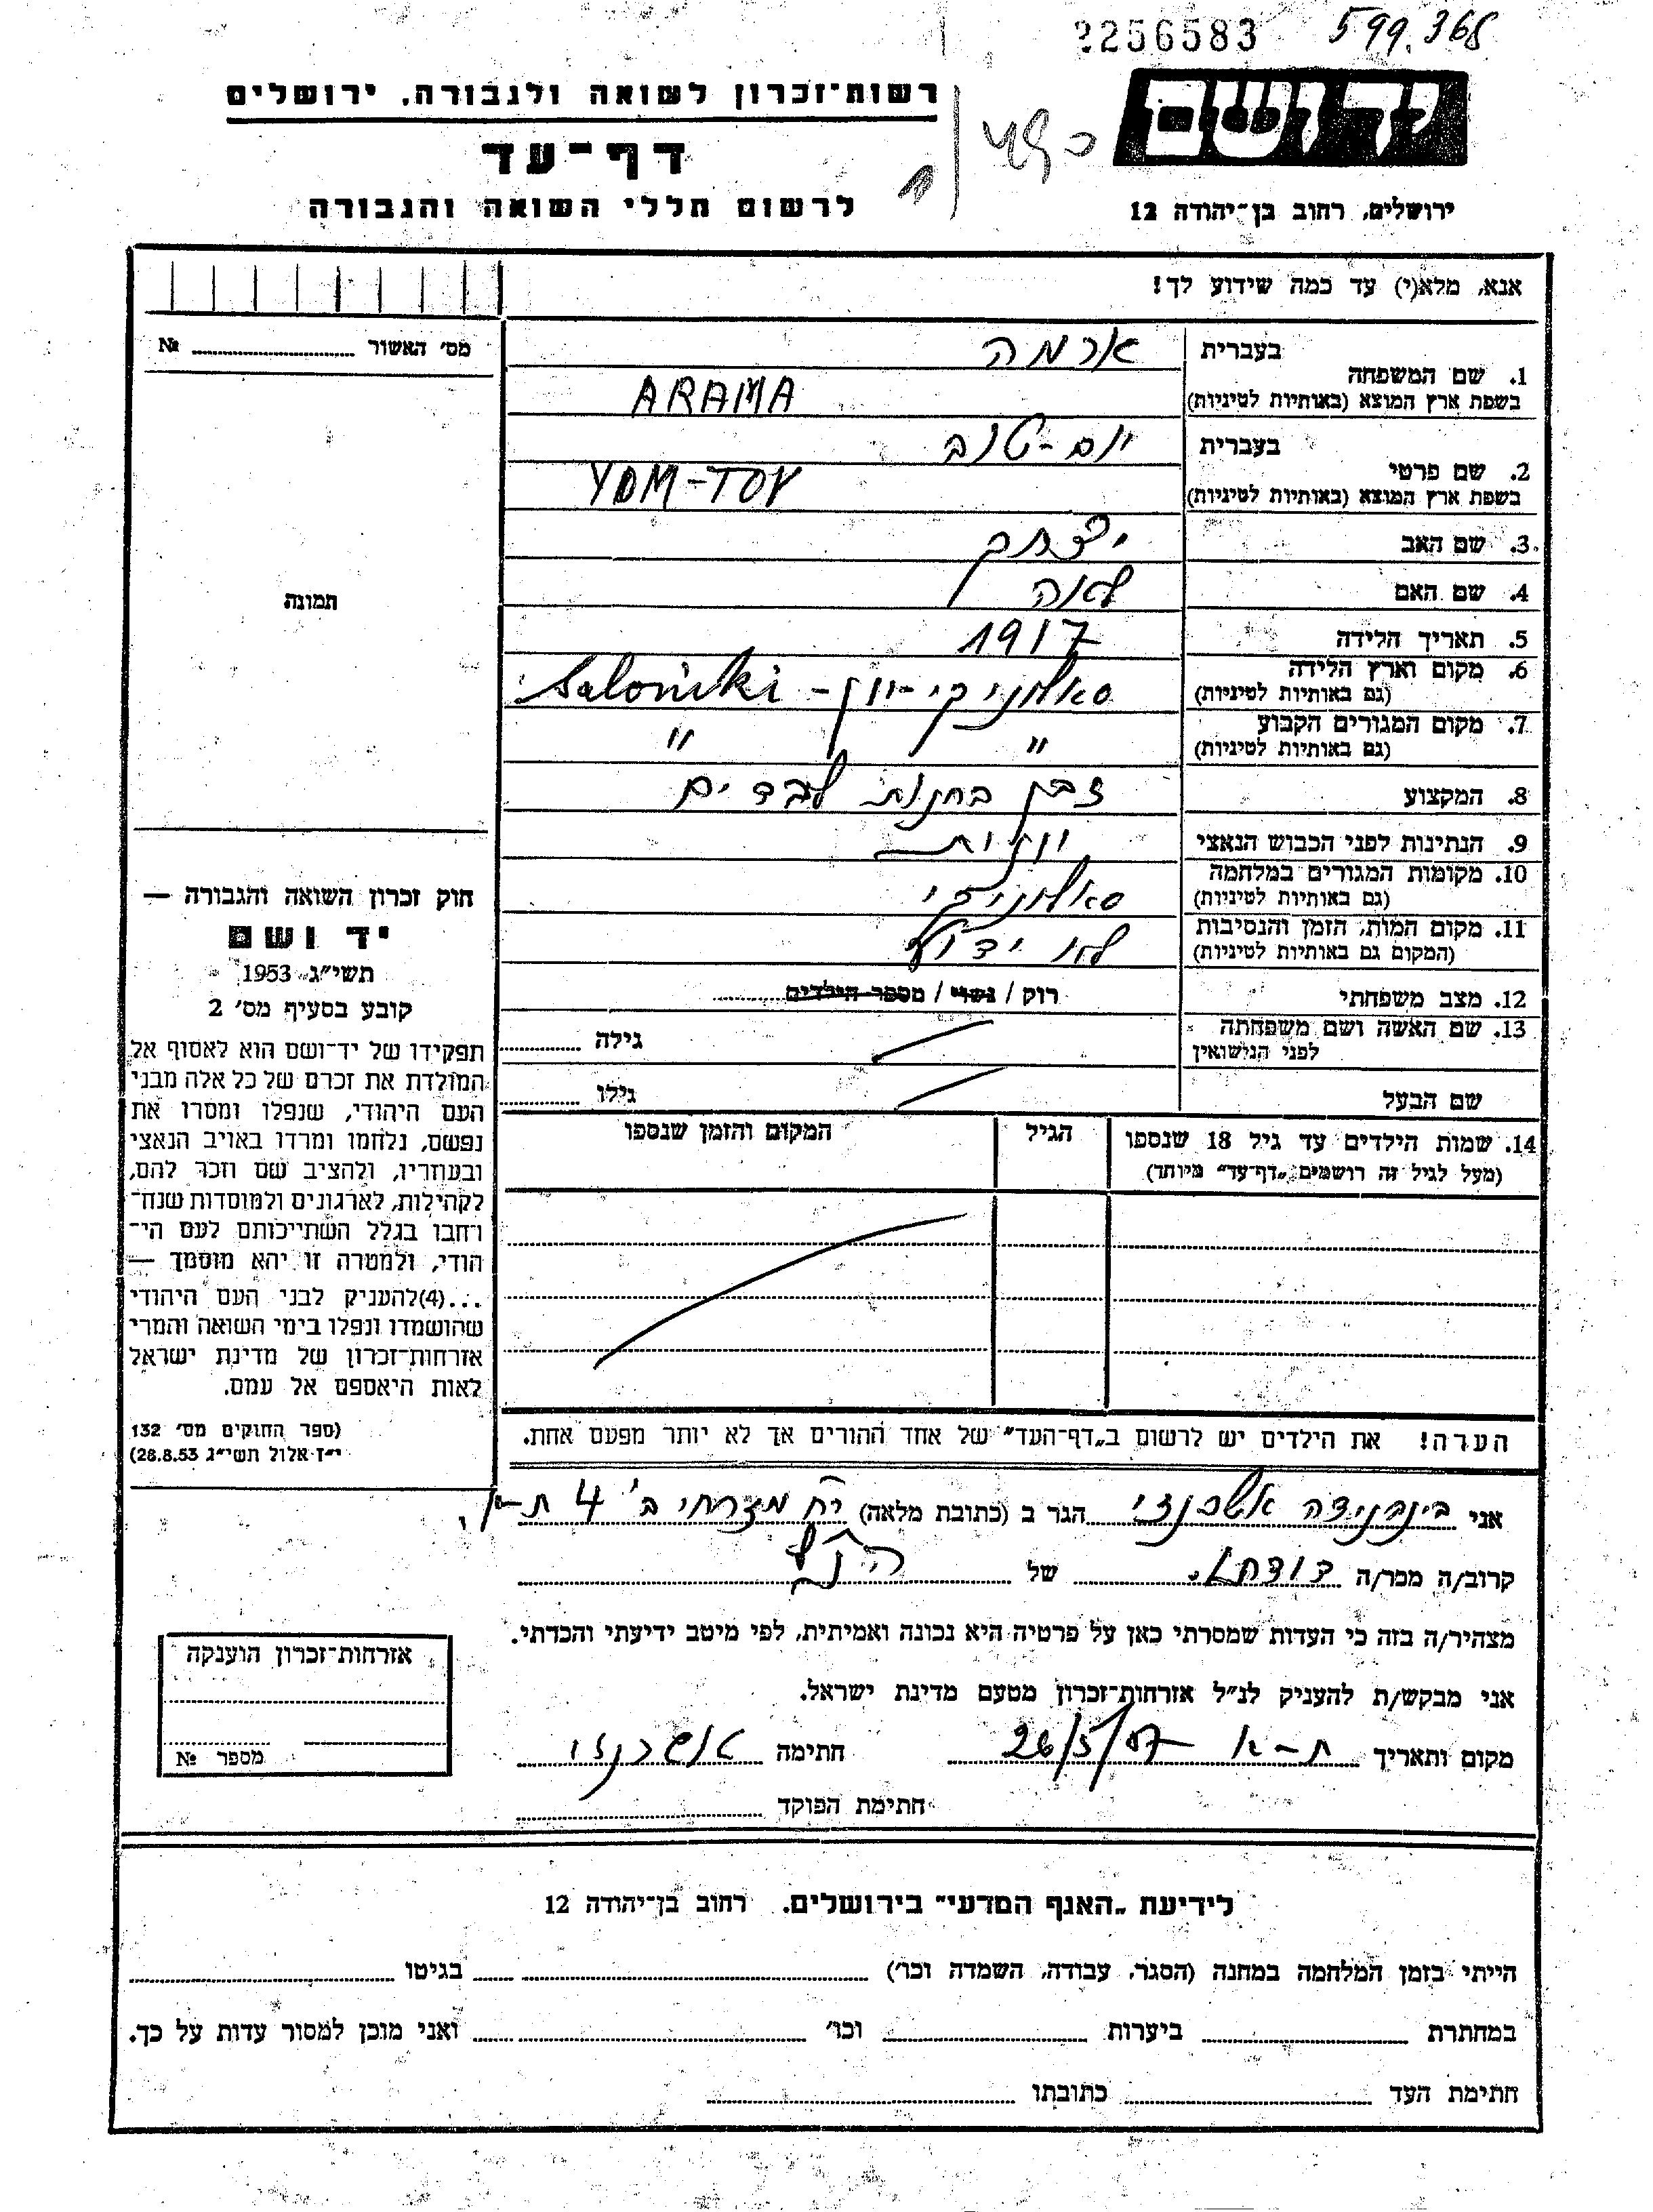 2256583 599.368
יד ושם
רשות־זכרון לשואה ולגבורה, ירושלים
דף־עד
לרשום חללי השואה והגבורה
ירושלים, רחוב בן־יהודה 12
אנא, מלא(י) עד כמה שידוע לך!
מס׳ האשור ........ №
תמונה
חוק זכרון השואה והגבורה —
יד ושם
תשי״ג 1953
קובע בסעיף מס׳ 2
תפקידו של יד־ושם הוא לאסוף אל
המולדת את זכרם של כל אלה מבני
העם היהודי, שנפלו ומסרו את
נפשם, נלחמו ומרדו באויב הנאצי
ובעוזריו, ולהציב שם וזכר להם,
לקהילות, לארגונים ולמוסדות שנח־
רחבו בגלל השתייכותם לעם הי־
הודי, ולמטרה זו יהא מוסמך —
...(4)להעניק לבני העם היהודי
שהושמדו ונפלו בימי השואה והמרי
אזרחות־זכרון של מדינת ישראל
לאות היאספם אל עמם.
(ספר החוקים מס׳ 132
י״ז אלול תשי״ג 28.8.53)
בעברית ארמה
1. שם המשפחה
בשפת ארץ המוצא (באותיות לטיניות) ARAMA
בעברית יום-טוב
2. שם פרטי
בשפת ארץ המוצא (באותיות לטיניות) YOM-TOV
3. שם האב יצחק
4. שם האם לאה
5. תאריך הלידה 1917
6. מקום וארץ הלידה סאלוניקי-יוון- Saloniki
(גם באותיות לטיניות)
7. מקום המגורים הקבוע " "
(גם באותיות לטיניות)
8. המקצוע זבן בחנות לבדים
9. הנתינות לפני הכבוש הנאצי יוונית
10. מקומות המגורים במלחמה סאלוניקי
(גם באותיות לטיניות)
11. מקום המות, הזמן והנסיבות לא ידוע
(המקום גם באותיות לטיניות)
12. מצב משפחתי רוק / נשוי / מספר הילדים ........
13. שם האשה ושם משפחתה גילה ........
לפני הנישואין
שם הבעל גילו ........
14. שמות הילדים עד גיל 18 שנספו הגיל המקום והזמן שנספו
(מעל לגיל זה רושמים „דף־עד״ מיוחד)
הערה! את הילדים יש לרשום ב„דף־העד״ של אחד ההורים אך לא יותר מפעם אחת.
אני בינבנידה אשכנזי הגר ב (כתובת מלאה) רח מזרחי ב' 4 ת-א
קרוב/ה מכר/ה דודתו של הנ"ל
מצהיר/ה בזה כי העדות שמסרתי כאן על פרטיה היא נכונה ואמיתית, לפי מיטב ידיעתי והכרתי.
אני מבקש/ת להעניק לנ״ל אזרחות־זכרון מטעם מדינת ישראל.
מקום ותאריך ת-א 26/5/57 חתימה אשכנזי
חתימת הפוקד ........
אזרחות־זכרון הוענקה
מספר №
לידיעת „האגף המדעי״ בירושלים. רחוב בן־יהודה 12
הייתי בזמן המלחמה במחנה (הסגר, עבודה, השמדה וכו׳) ........ בגיטו ........
במחתרת ........ ביערות ........ וכו׳ ........ ואני מוכן למסור עדות על כך.
חתימת העד ........ כתובתו ........